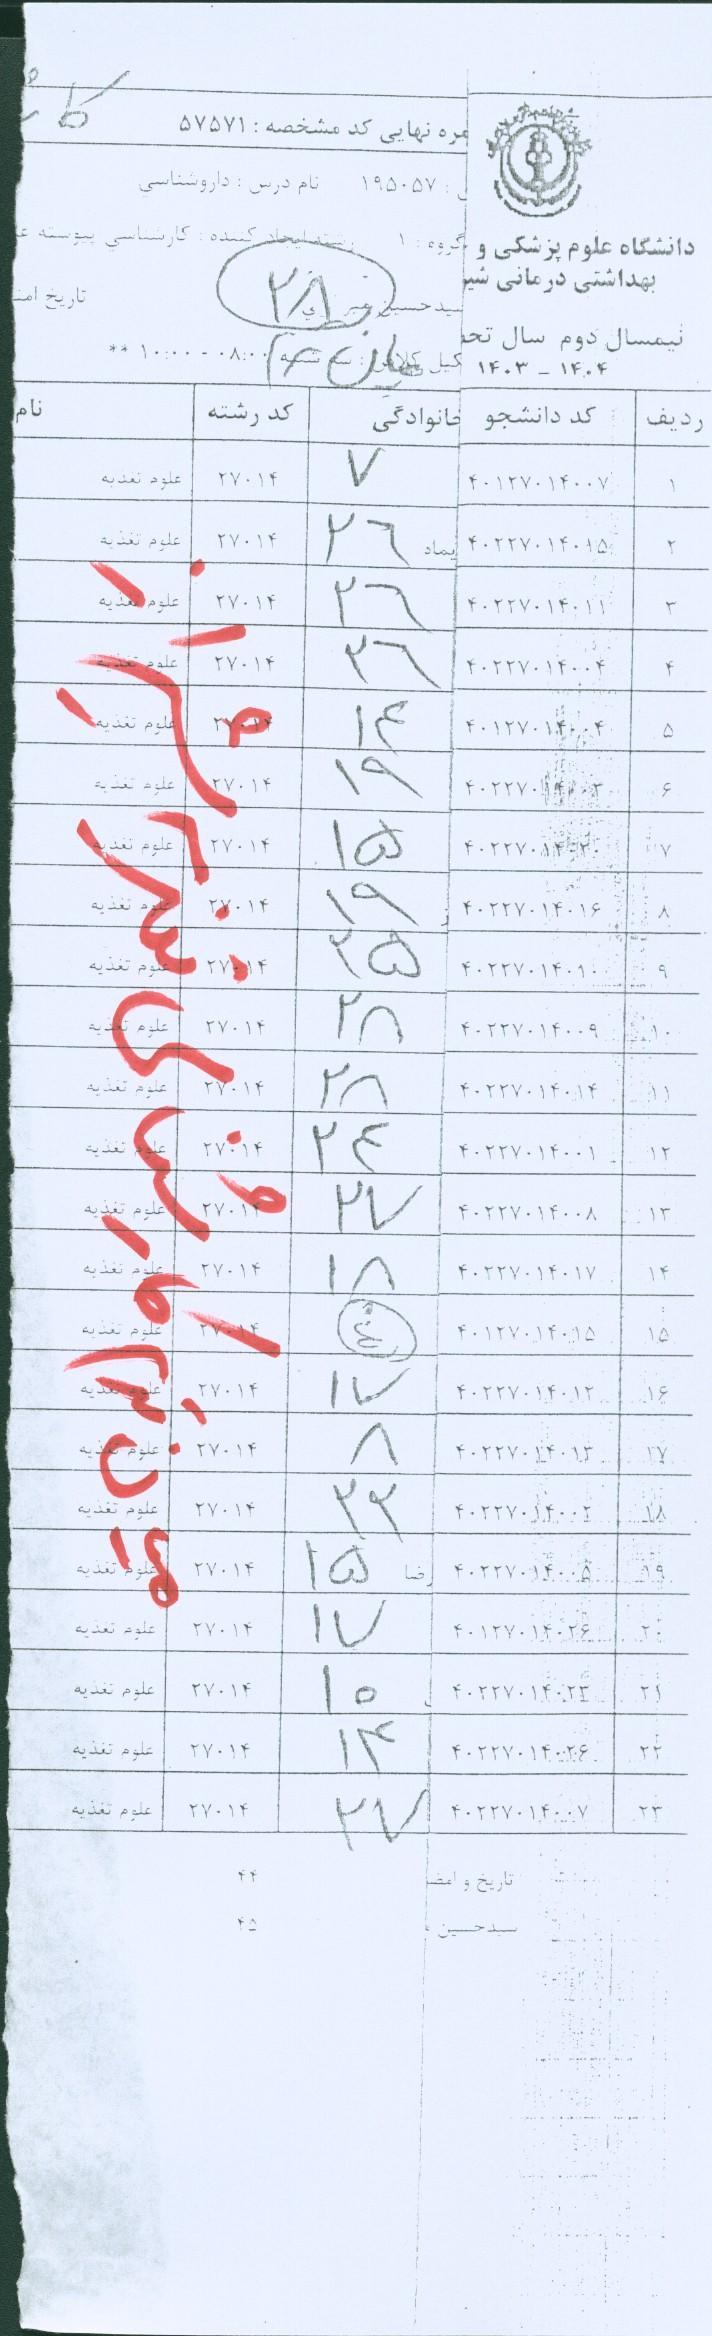 مره نهایی کد مشخصه : ۵۷۵۷۱
: ۱۹۵۰۵۷ نام درس : داروشناسي
گروه : ۱ رشته ایجاد کننده : کارشناسي پیوسته
دانشگاه علوم پزشکی و
بهداشتی درمانی شیر
سیدحسین
تاریخ امض
۲۸
نیمسال دوم سال تحص
۱۴۰۳ - ۱۴۰۴
کیل کلاس : سه شنبه ۰۸:۰۰ - ۱۰:۰۰ **
ردیف کد دانشجو خانوادگی کد رشته نام
۱ ۴۰۱۲۷۰۱۴۰۰۷ ۷ ۲۷۰۱۴ علوم تغذیه
۲ ۴۰۲۲۷۰۱۴۰۱۵ یماد ۲۶ ۲۷۰۱۴ علوم تغذیه
۳ ۴۰۲۲۷۰۱۴۰۱۱ ۲۶ ۲۷۰۱۴ علوم تغذیه
۴ ۴۰۲۲۷۰۱۴۰۰۴ ۲۶ ۲۷۰۱۴ علوم تغذیه
۵ ۴۰۱۲۷۰۱۴۰۰۴ ۱۴ ۲۷۰۱۴ علوم تغذیه
۶ ۴۰۲۲۷۰۱۴۰۰۳ ۱۹ ۲۷۰۱۴ علوم تغذیه
۷ ۴۰۲۲۷۰۱۴۰۲۰ ۱۵ ۲۷۰۱۴ علوم تغذیه
۸ ۴۰۲۲۷۰۱۴۰۱۶ ۱۹ ۲۷۰۱۴ علوم تغذیه
۹ ۴۰۲۲۷۰۱۴۰۱۰ ۲۵ ۲۷۰۱۴ علوم تغذیه
۱۰ ۴۰۲۲۷۰۱۴۰۰۹ ۲۸ ۲۷۰۱۴ علوم تغذیه
۱۱ ۴۰۲۲۷۰۱۴۰۱۴ ۲۸ ۲۷۰۱۴ علوم تغذیه
۱۲ ۴۰۲۲۷۰۱۴۰۰۱ ۲۴ ۲۷۰۱۴ علوم تغذیه
۱۳ ۴۰۲۲۷۰۱۴۰۰۸ ۲۷ ۲۷۰۱۴ علوم تغذیه
۱۴ ۴۰۲۲۷۰۱۴۰۱۷ ۱۸ ۲۷۰۱۴ علوم تغذیه
۱۵ ۴۰۱۲۷۰۱۴۰۱۵ ۲۷۰۱۴ علوم تغذیه
۱۶ ۴۰۲۲۷۰۱۴۰۱۲ ۱۷ ۲۷۰۱۴ علوم تغذیه
۱۷ ۴۰۲۲۷۰۱۴۰۱۳ ۸ ۲۷۰۱۴ علوم تغذیه
۱۸ ۴۰۲۲۷۰۱۴۰۰۲ ۲۲ ۲۷۰۱۴ علوم تغذیه
۱۹ ۴۰۲۲۷۰۱۴۰۰۵ رضا ۱۵ ۲۷۰۱۴ علوم تغذیه
۲۰ ۴۰۱۲۷۰۱۴۰۲۶ ۱۷ ۲۷۰۱۴ علوم تغذیه
۲۱ ۴۰۲۲۷۰۱۴۰۲۳ ۱۰ ۲۷۰۱۴ علوم تغذیه
۲۲ ۴۰۲۲۷۰۱۴۰۲۶ ۱۴ ۲۷۰۱۴ علوم تغذیه
۲۳ ۴۰۲۲۷۰۱۴۰۰۷ ۲۷ ۲۷۰۱۴ علوم تغذیه
تاریخ و امض ۴۴
سیدحسین ۴۵